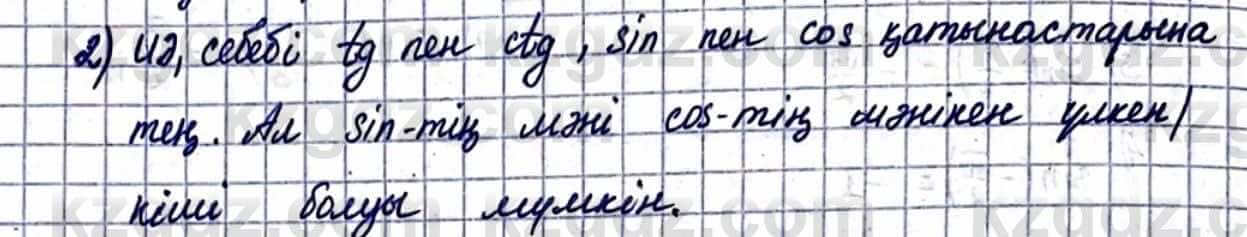 2) иә, себебі tg пен ctg, sin пен cos қатынастарына
тең. Ал sin-тің мәні cos-тің мәнінен үлкен/
кіші болуы мүмкін.